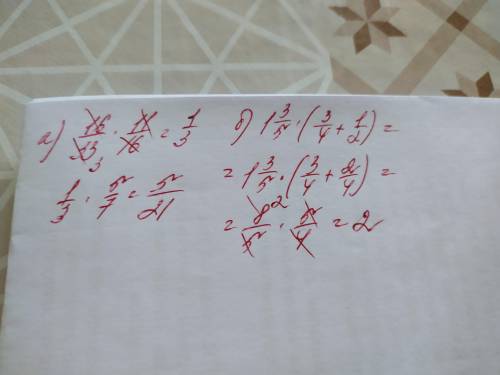 а) 16/33 · 11/16 = 1/3
1/3 · 5/7 = 5/21
б) 1 3/5 · (3/4 + 1/2) =
= 1 3/5 · (3/4 + 2/4) =
= 8/5 · 5/4 = 2